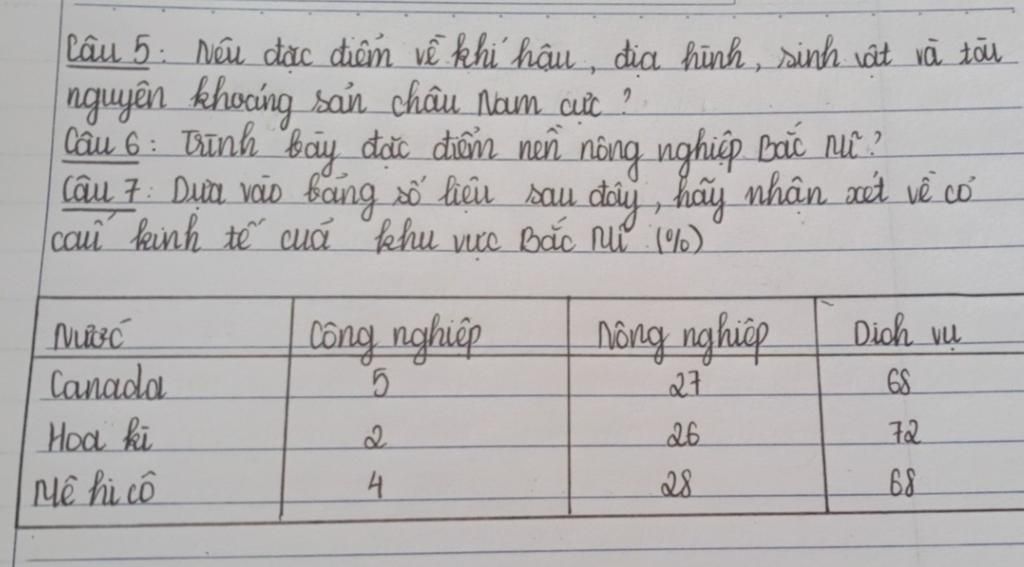 Câu 5: Nêu đặc điểm về khí hậu, địa hình, sinh vật và tài
nguyên khoáng sản châu Nam cực?
Câu 6: Trình bày đặc điểm nền nông nghiệp Bắc Mĩ?
Câu 7: Dựa vào bảng số liệu sau đây, hãy nhận xét về cơ
cấu kinh tế của khu vực Bắc Mĩ (%)
Nước Công nghiệp Nông nghiệp Dich vụ
Canada 5 27 68
Hoa kì 2 26 72
Mê hi cô 4 28 68